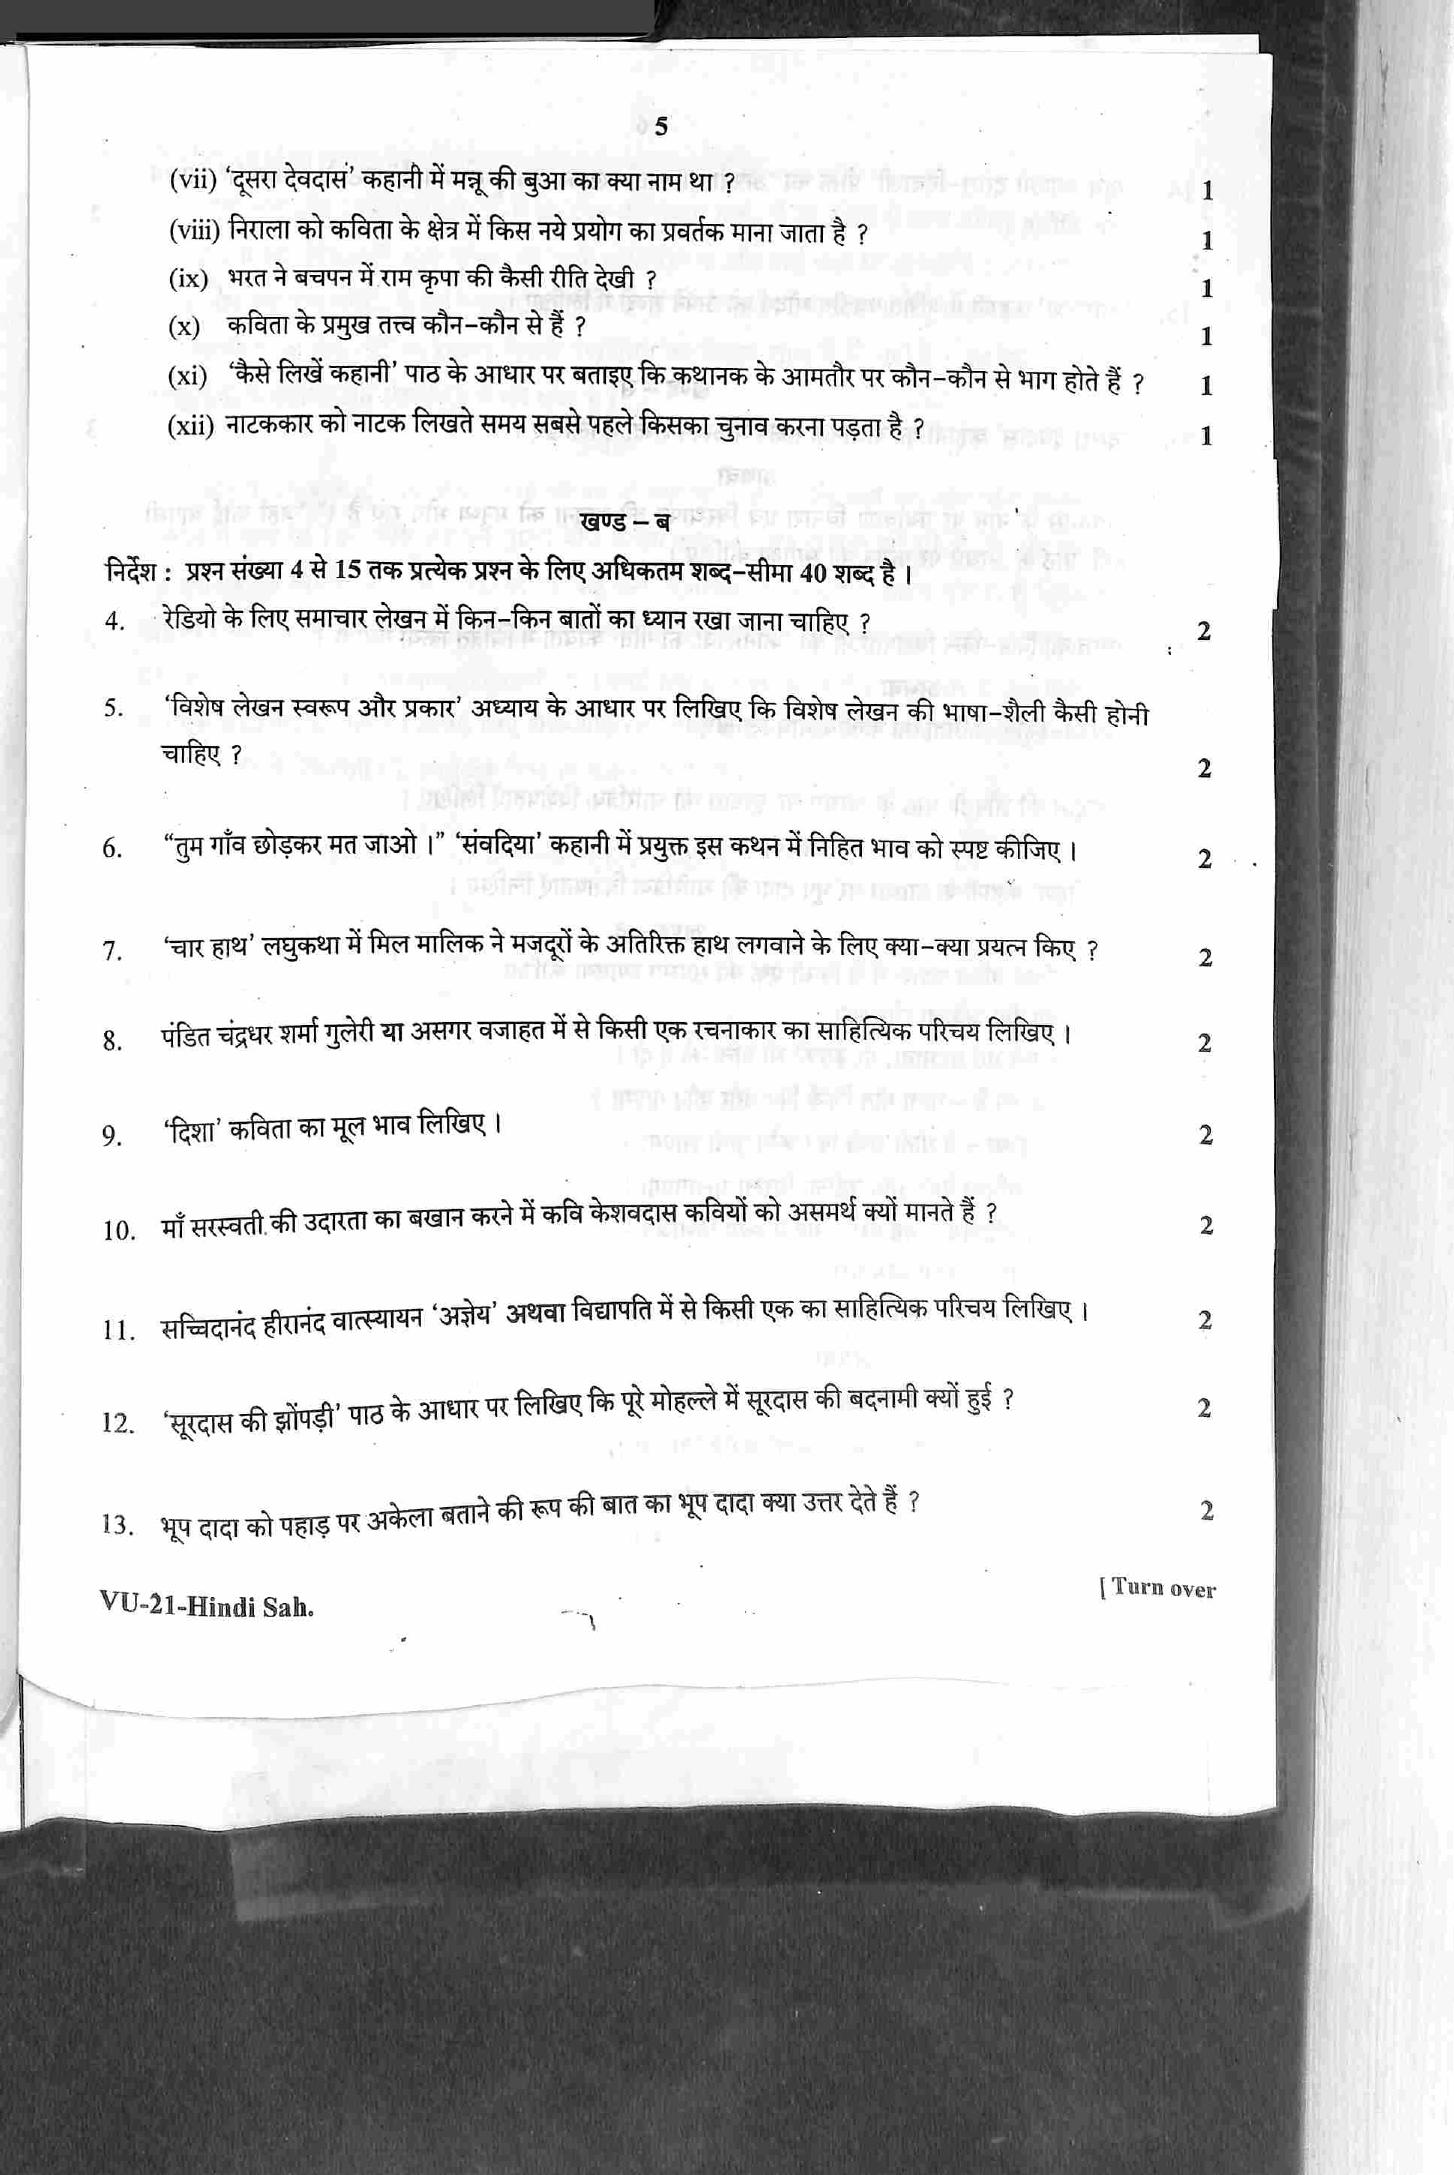 5
(vii) ‘दूसरा देवदास’ कहानी में मन्नू की बुआ का क्या नाम था ? 1
(viii) निराला को कविता के क्षेत्र में किस नये प्रयोग का प्रवर्तक माना जाता है ? 1
(ix) भरत ने बचपन में राम कृपा की कैसी रीति देखी ? 1
(x) कविता के प्रमुख तत्त्व कौन-कौन से हैं ? 1
(xi) ‘कैसे लिखें कहानी’ पाठ के आधार पर बताइए कि कथानक के आमतौर पर कौन-कौन से भाग होते हैं ? 1
(xii) नाटककार को नाटक लिखते समय सबसे पहले किसका चुनाव करना पड़ता है ? 1
खण्ड – ब
निर्देश : प्रश्न संख्या 4 से 15 तक प्रत्येक प्रश्न के लिए अधिकतम शब्द-सीमा 40 शब्द है ।
4. रेडियो के लिए समाचार लेखन में किन-किन बातों का ध्यान रखा जाना चाहिए ? 2
5. ‘विशेष लेखन स्वरूप और प्रकार’ अध्याय के आधार पर लिखिए कि विशेष लेखन की भाषा-शैली कैसी होनी
चाहिए ? 2
6. “तुम गाँव छोड़कर मत जाओ ।” ‘संवदिया’ कहानी में प्रयुक्त इस कथन में निहित भाव को स्पष्ट कीजिए । 2
7. ‘चार हाथ’ लघुकथा में मिल मालिक ने मजदूरों के अतिरिक्त हाथ लगवाने के लिए क्या-क्या प्रयत्न किए ? 2
8. पंडित चंद्रधर शर्मा गुलेरी या असगर वजाहत में से किसी एक रचनाकार का साहित्यिक परिचय लिखिए । 2
9. ‘दिशा’ कविता का मूल भाव लिखिए । 2
10. माँ सरस्वती की उदारता का बखान करने में कवि केशवदास कवियों को असमर्थ क्यों मानते हैं ? 2
11. सच्चिदानंद हीरानंद वात्स्यायन ‘अज्ञेय’ अथवा विद्यापति में से किसी एक का साहित्यिक परिचय लिखिए । 2
12. ‘सूरदास की झोंपड़ी’ पाठ के आधार पर लिखिए कि पूरे मोहल्ले में सूरदास की बदनामी क्यों हुई ? 2
13. भूप दादा को पहाड़ पर अकेला बताने की रूप की बात का भूप दादा क्या उत्तर देते हैं ? 2
VU-21-Hindi Sah. [ Turn over